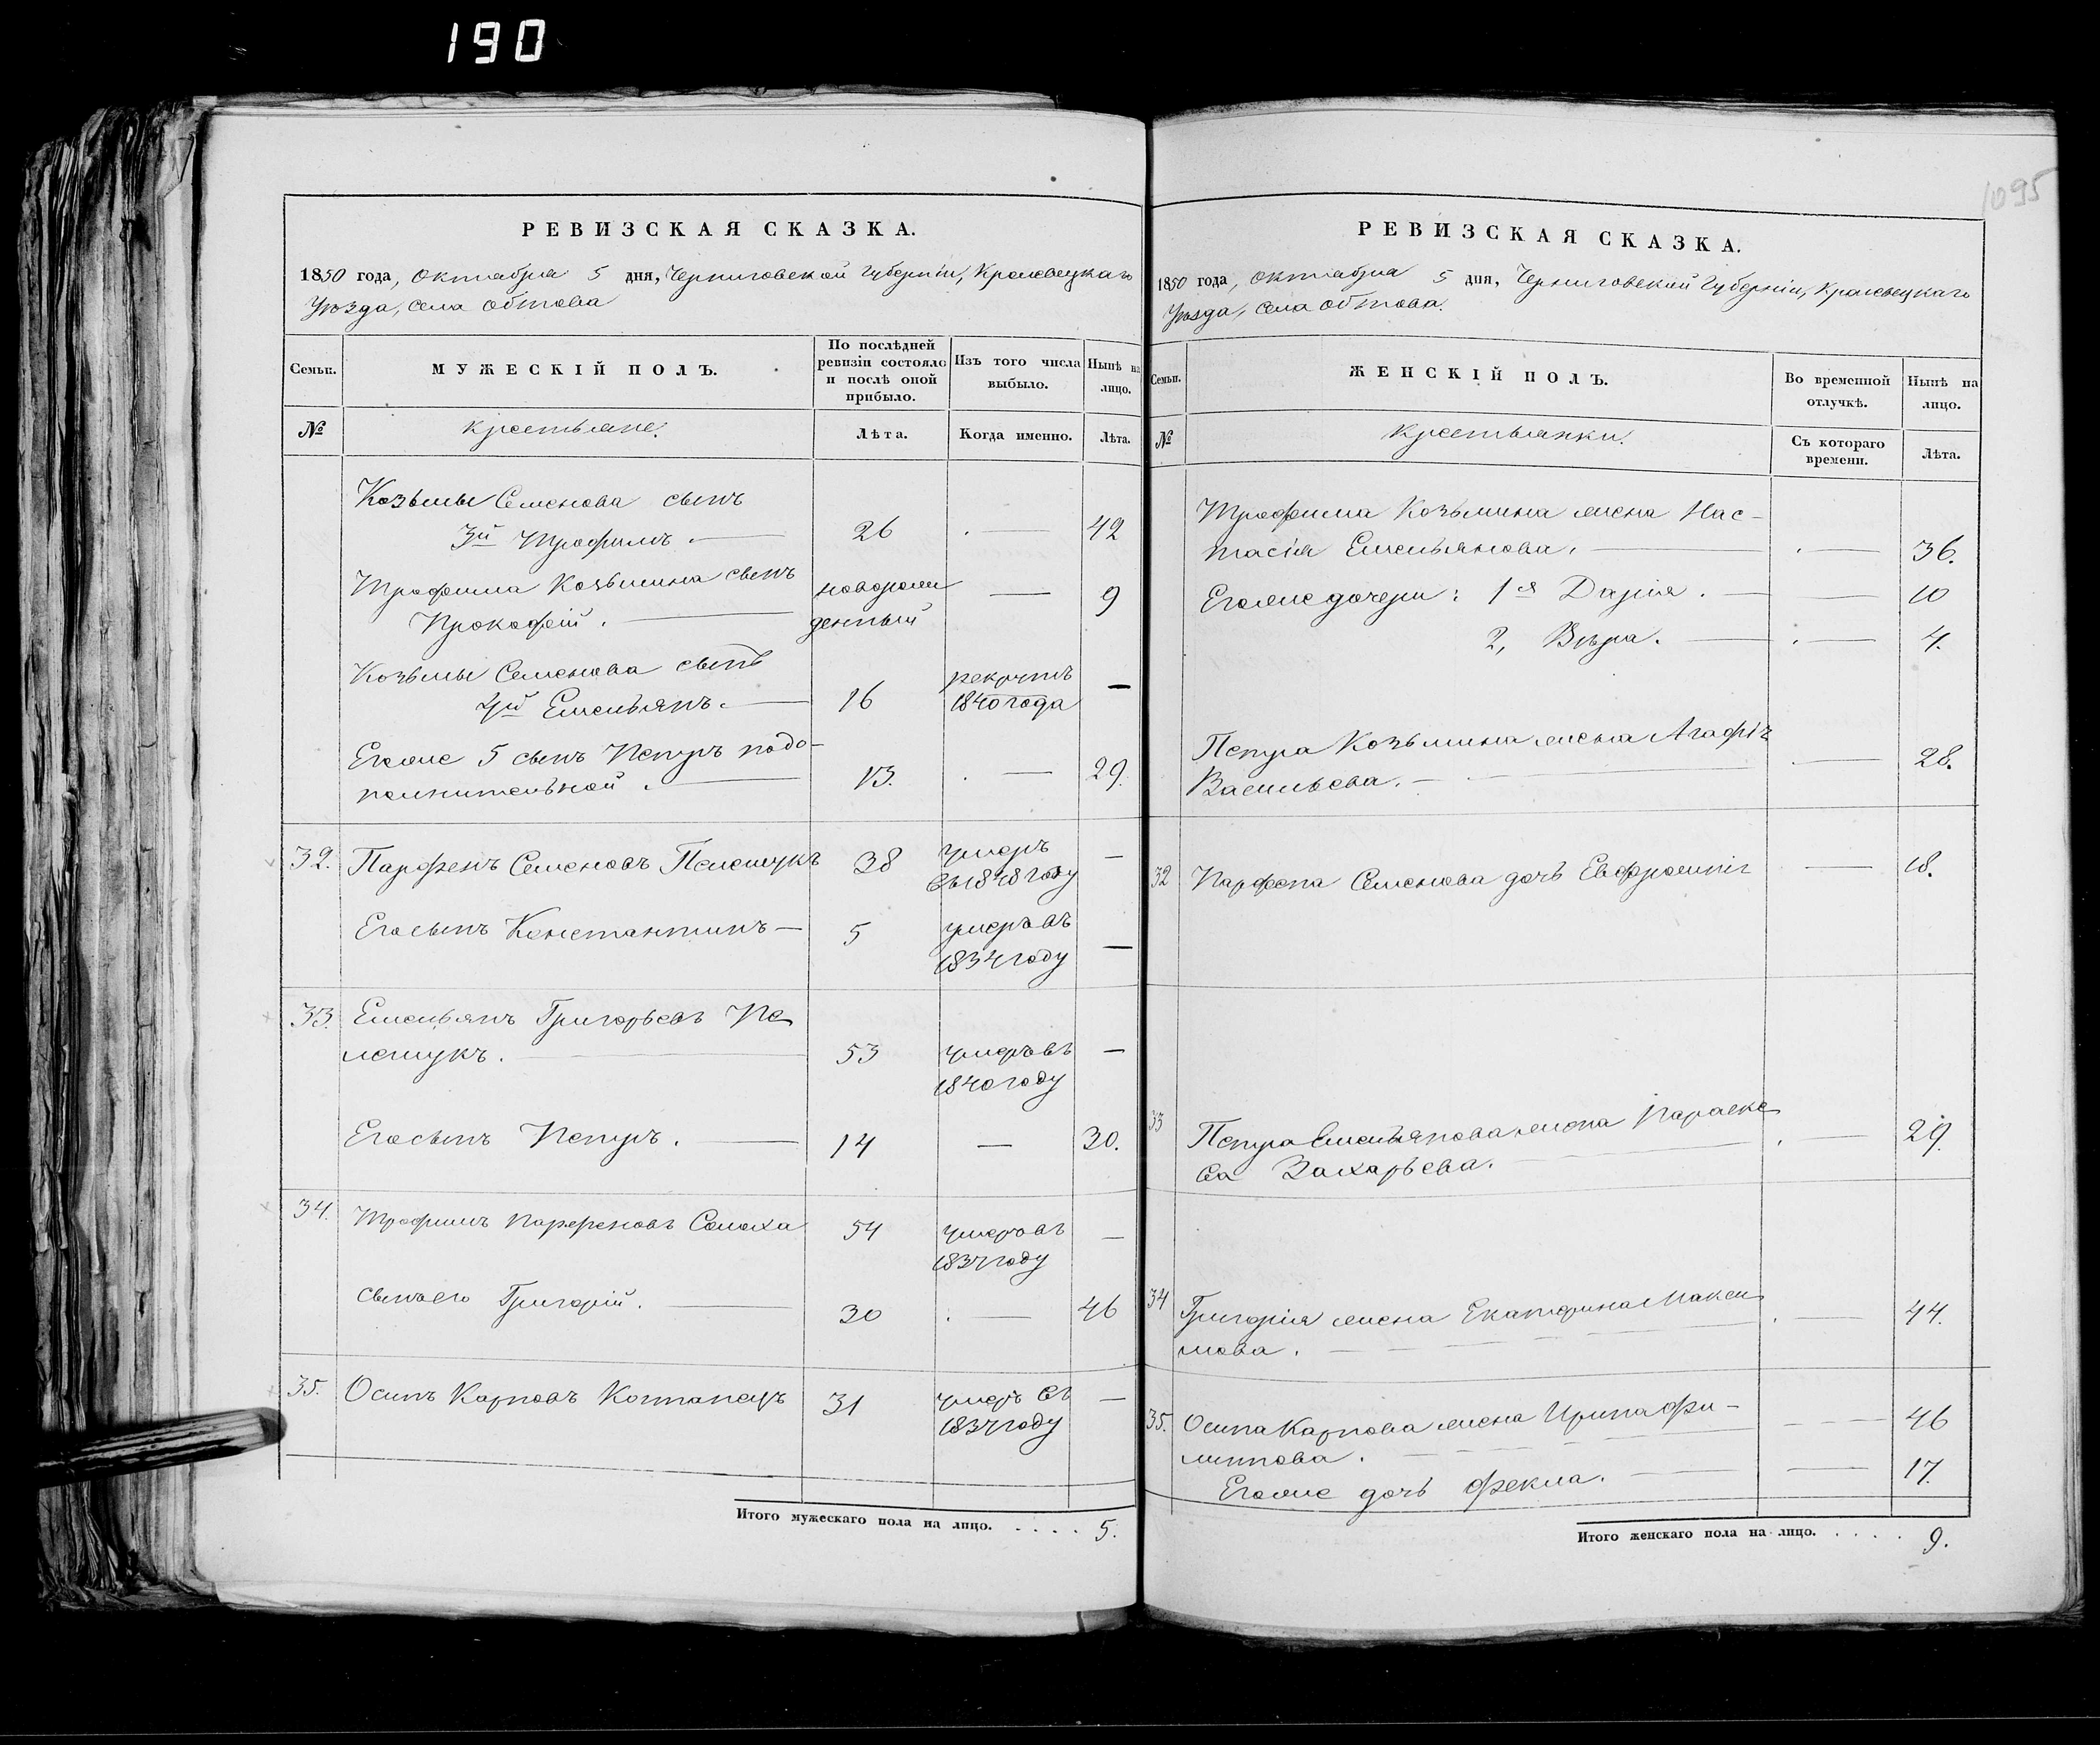 190
1095
РЕВИЗСКАЯ СКАЗКА.
1850 года, Октября 5 дня, Черниговской Губерніи, Кролевецкаго
Уѣзда, села Обтова
Семьи.
МУЖЕСКІЙ ПОЛЪ.
По послѣдней
ревизіи состояло
и послѣ оной
прибыло.
Изъ того числа
выбыло.
Нынѣ на
лицо.
№
крестьяне.
Лѣта.
Когда именно.
Лѣта.
Козьмы Семенова сынъ
3й Трофимъ. 26 42
Трофима Козьмина сынъ новорож 9
Прокофій. денный
Козьмы Семенова сынъ рекрутъ
4й Емельянъ. 16 1840 года
Егоже 5 сынъ Петръ подо-
13. 29.
32. Парфенъ Семеновъ Пелешукъ 38 умеръ
въ 1848 году
Его сынъ Константинъ 5 умеръ въ
1834 году
33. Емельянъ Григорьевъ Пе
лешукъ. 53 умеръ въ
1840 году
Его сынъ Петръ. 14 30.
34. Трофимъ Парфеновъ Солоха 54 умеръ въ
1837 году
сынъ его Григорій. 30 46
35. Осипъ Карповъ 31 умеръ въ
1837 году
Итого мужескаго пола на лицо. . . . . 5.
РЕВИЗСКАЯ СКАЗКА.
1850 года, Октября 5 дня, Черниговской Губерніи, Кролевецкаго
Уѣзда, села Обтова.
Семьи.
ЖЕНСКІЙ ПОЛЪ.
Во временной
отлучкѣ.
Нынѣ на
лицо.
№
крестьянки.
Съ котораго
времени.
Лѣта.
Трофима Козьмина жена Нас-
тасія Емельянова. 36.
Егоже дочери: 1я Дарія. 10
2, Вѣра. 4.
Петра Козьмина жена Агафія
Васильева. 28.
32 Парфена Семенова дочь Евфросинія 18.
33 Петра Емельянова жена Параске
ва Захарьева. 29.
34 Григорія жена Екатерина Макси
мова. 44.
35. Осипа Карпова жена Ирина Фи-
липова. 46
Егоже дочь Фекла. 17.
Итого женскаго пола на лицо. . . . . 9.